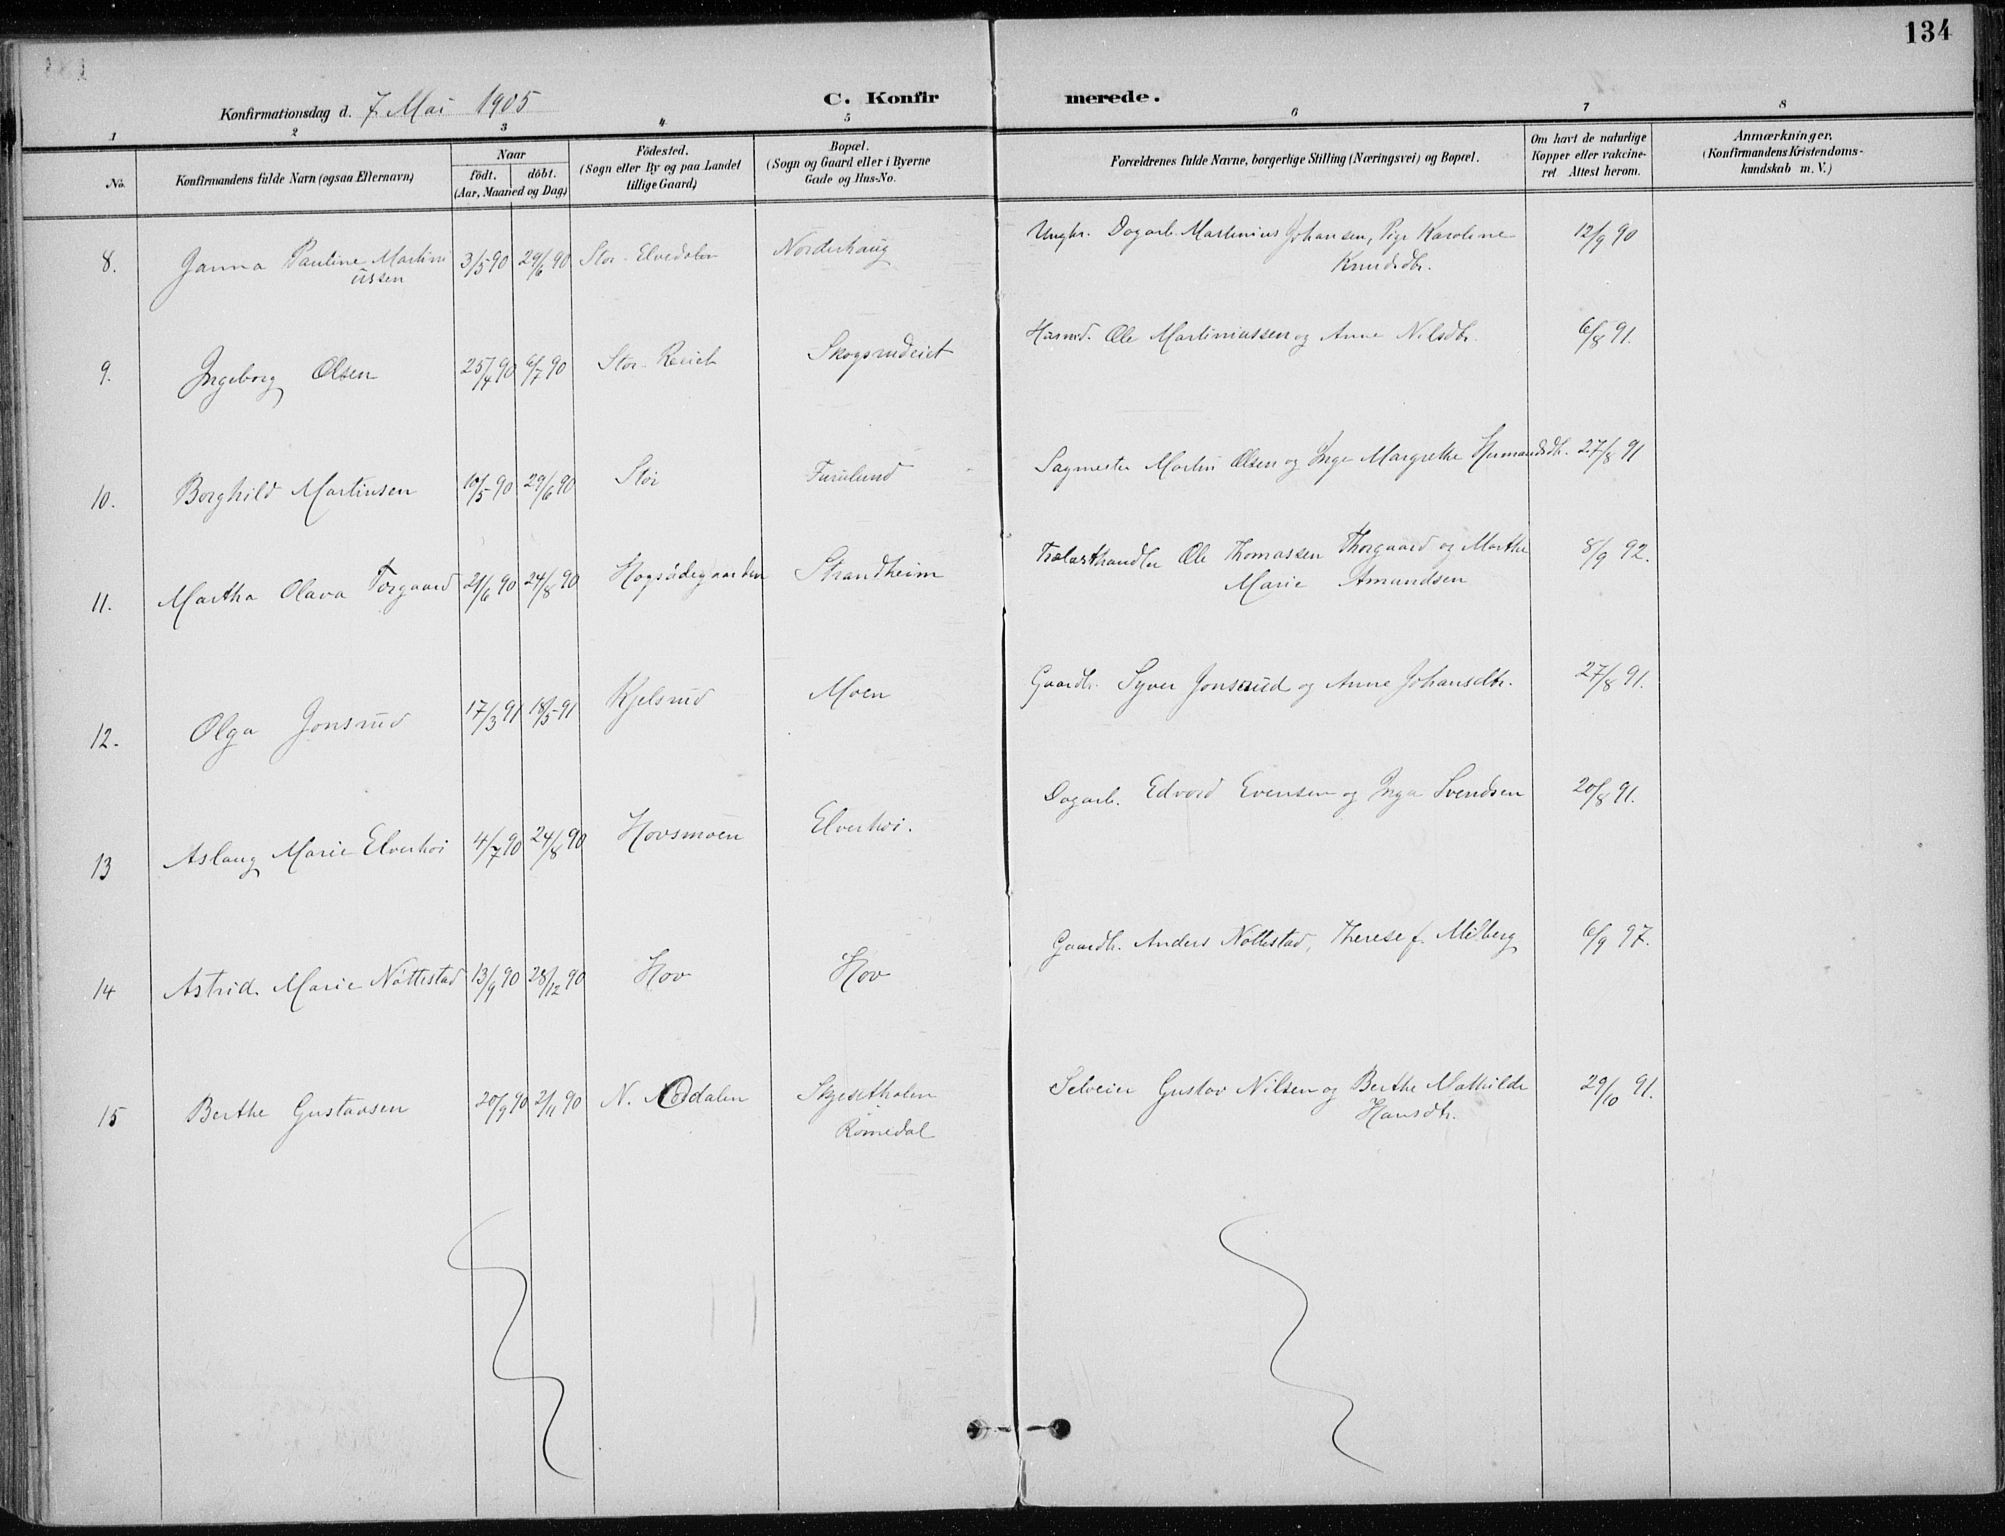 134
Konfirmationsdag d. 7 Mai 1905
C. Konfirmerede.
1 2 3 4 5 6 7 8
No.
Konfirmandens fulde Navn (ogsaa Efternavn)
Naar
födt. döbt.
(Aar, Maaned og Dag)
Födested.
(Sogn eller By og paa Landet
tillige Gaard)
Bopæl.
(Sogn og Gaard eller i Byerne
Gade og Hus-No.
Forældrenes fulde Navne, borgerlige Stilling (Næringsvei) og Bopæl.
Om havt de naturlige
Kopper eller vakcine-
ret Attest herom.
Anmærkninger.
(Konfirmandens Kristendoms-
kundskab m. V.)
8. Janna Pauline Martini 3/5 90 29/6 90 Stor-Elvedalen Norderhaug Ungkr. Dagarb. Martinius Johansen, Pige Karoline 12/9 90
ussen Knudsdtr.
9. Ingeborg Olsen 25/4 90 6/7 90 Stor Skogsrudeiet Husmd. Ole Martiniussen og Anne Nilsdtr. 6/8 91.
10. Borghild Martinsen 10/5 90 29/6 90 Stor Furulund Sagmester Martin Olsen og Inge Margrethe Hermandsdtr. 27/8 91
11. Martha Olava Torgaard 21/6 90 24/8 90 Hogsüdegaarden Strandheim Trælasthandler Ole Thomassen Thorgaard og Marthe 8/9 92.
Marie Amundsen
12. Olga Jonsrud 17/3 91 18/5 91 Kjelsrud Moen Gaardbr. Syver Jonsrud og Anne Johansdtr. 27/8 91.
13 Aslaug Marie Elverhöi 4/7 90 24/8 90 Hovsmoen Elverhöi. Dagarb. Edvard Evensen og Inga Svendsen 20/8 91.
14 Astrid Marie Nöttestad 13/9 90 28/12 90 Hov Hov Gaardbr. Anders Nöttestad, Therese f. Milberg 6/9 97.
15 Berthe Gustavsen 20/9 90 2/11 90 N. Odalen Skjesetholen Selveier Gustav Nilsen og Berthe Mathilde 29/10 91.
Romedal Hansdtr.